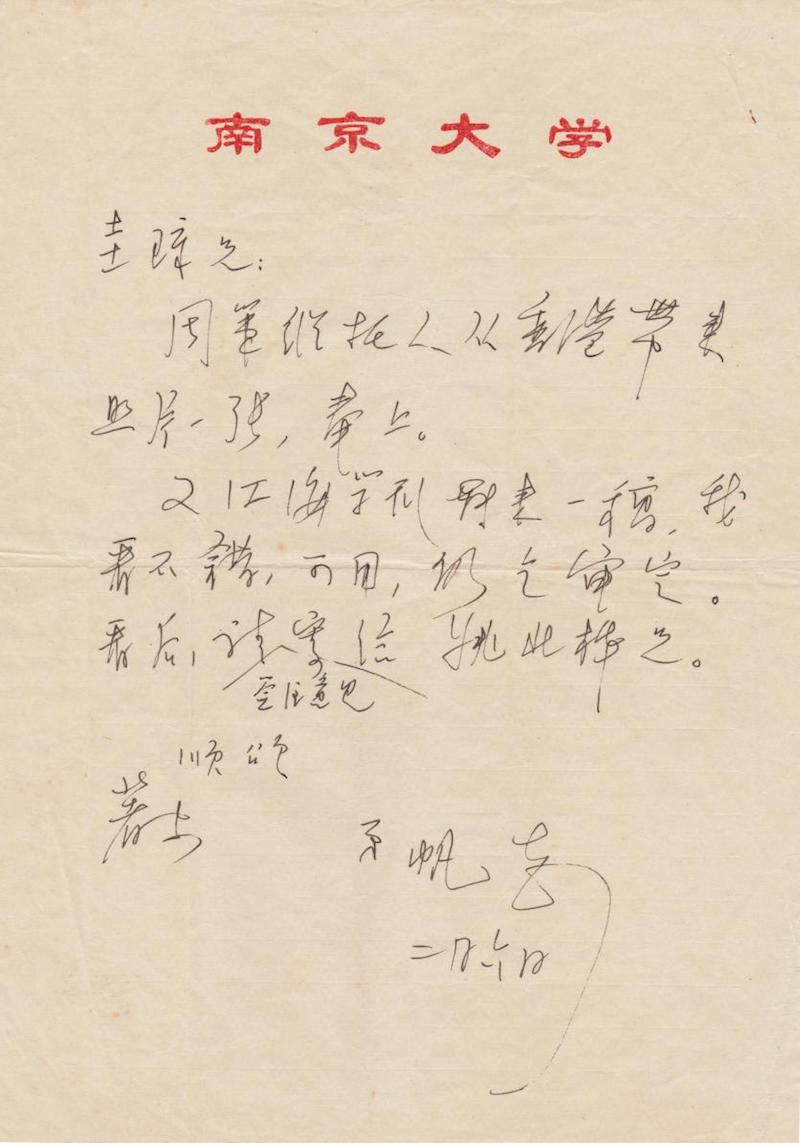 南京大学
圭璋兄：
周策纵托人从香港带来
照片一张，奉上。
又江海学刊来一稿，我
看不错，可用，仍乞审定。
看后，请寄给姚北桦兄。
注意见
顺颂
著安
弟 帆
二月六日